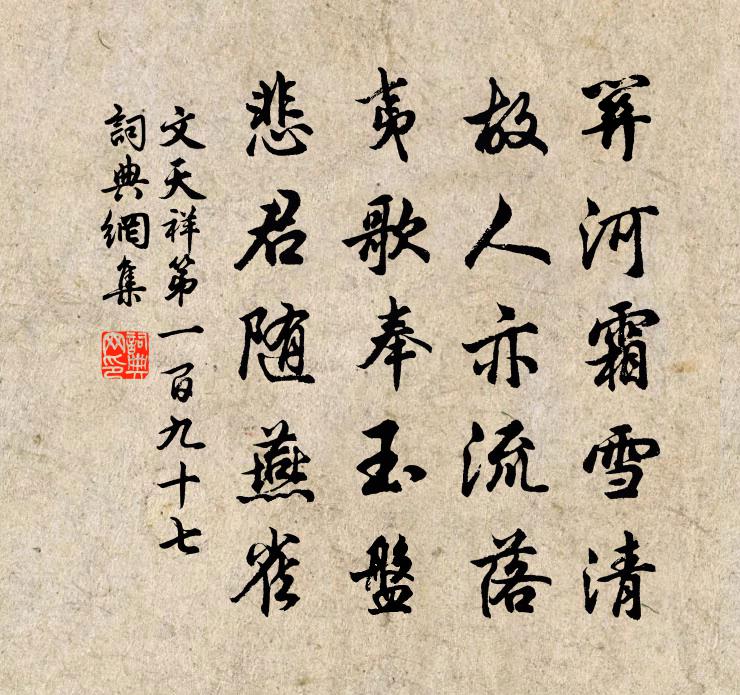 关河霜雪清
故人亦流落
夷歌奉玉盤
悲君随燕雀
文天祥第一百九十七
詞典網集
詞典網印